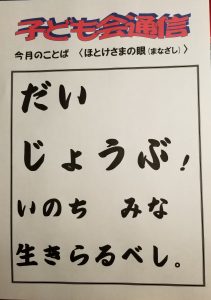 子ども会通信
今月のことば 〈ほとけさまの眼(まなざし)〉
だい
じょうぶ!
いのち みな
生きらるべし。